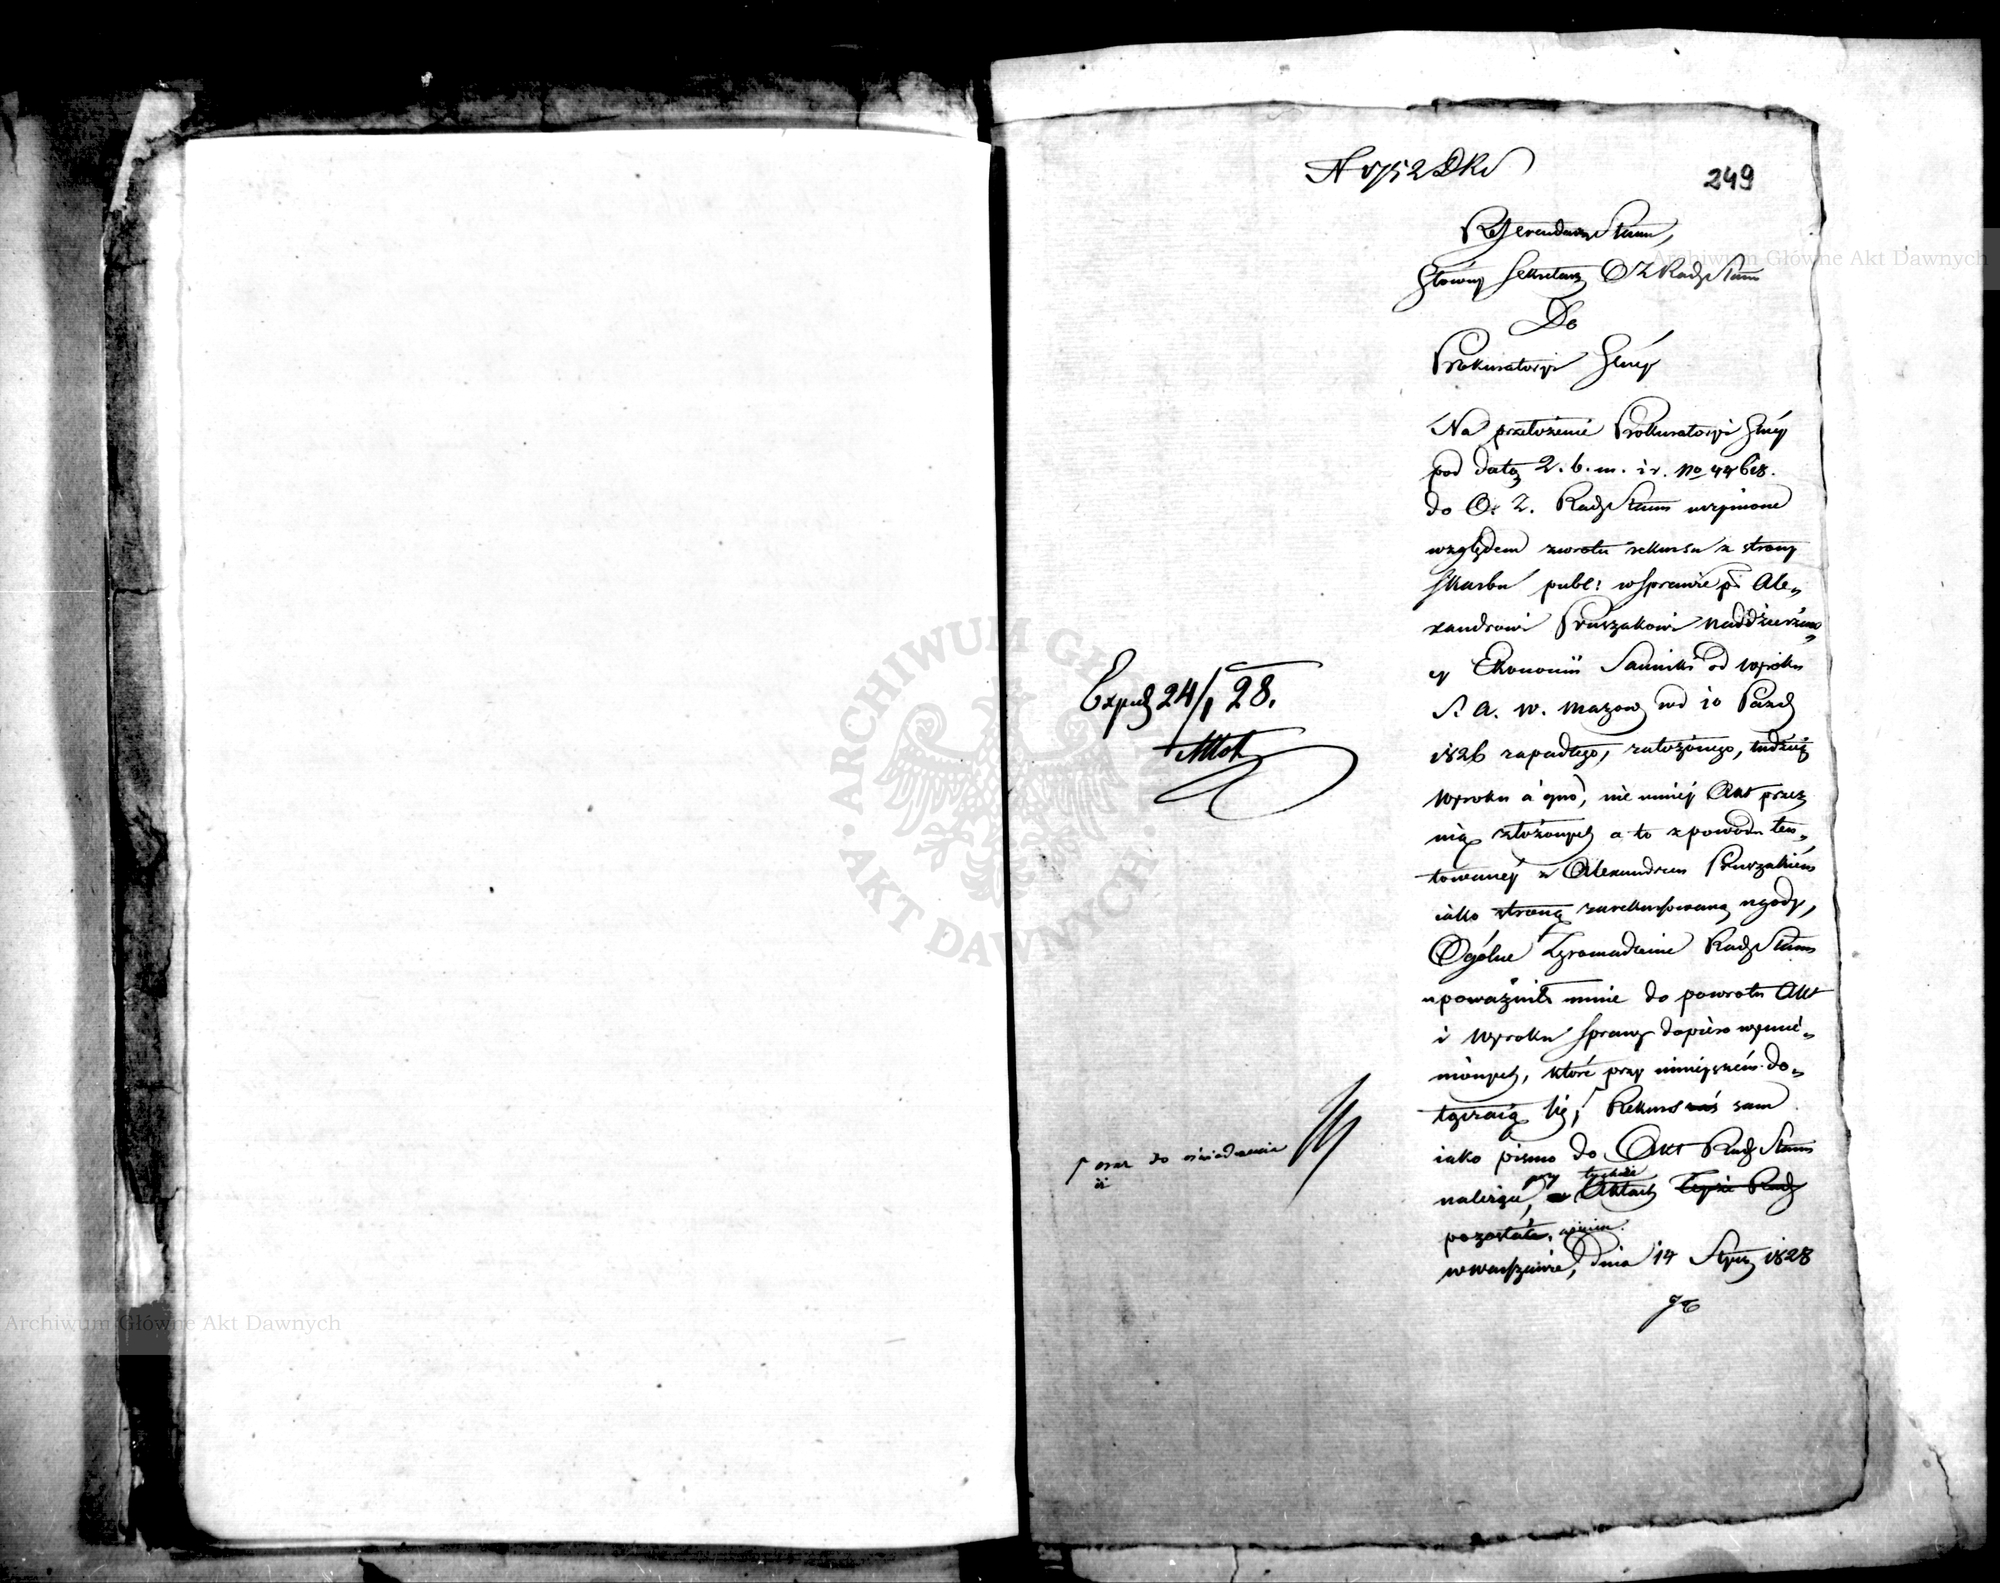 249
Referendarz Stanu,
Główny Sekretarz O Z Rady Stanu
Do
Prokuratoryi Gńey
Na przełożenie Prokuratoryi Gńey
pod datą 2. b. m. i r. No
do O. Z. Rady Stanu uczynione
względem zwrotu rekursu z strony
Skarbu publ: w Sprawie pko Ale-
xandrowi Pruszakowi Naddzierżaw-
cy Ekonomii Sanniki od wyroku
S. A. W. Mazow pod 10 Paźdz
1826 zapadłego, założonego, tudzież
Wyroku a quo, nie mniey Akt przez
nią złożonych a to z powodu ten-
towaney z Alexandrem Pruszakiem
iako stroną zarekursowaną ugody,
Ogólne Zgromadzenie Rady Stanu
upoważniło mnie do powrotu Akt
i Wyroku Sprawy dopiero wymie-
nionych, które przy ninieyszém do-
łączaią się, Rekurs zaś sam
iako pismo do Akt Rady Stanu
należące, przy tychże Aktach Teyże Rady
pozostało.
w Warszawie, dnia 14 Stycz 1828
Exped 24/1 28.
oraz do oświadczenia
iż
Archiwum Główne Akt Dawnych
ARCHIWUM GŁÓWNE AKT DAWNYCH
Archiwum Główne Akt Dawnych